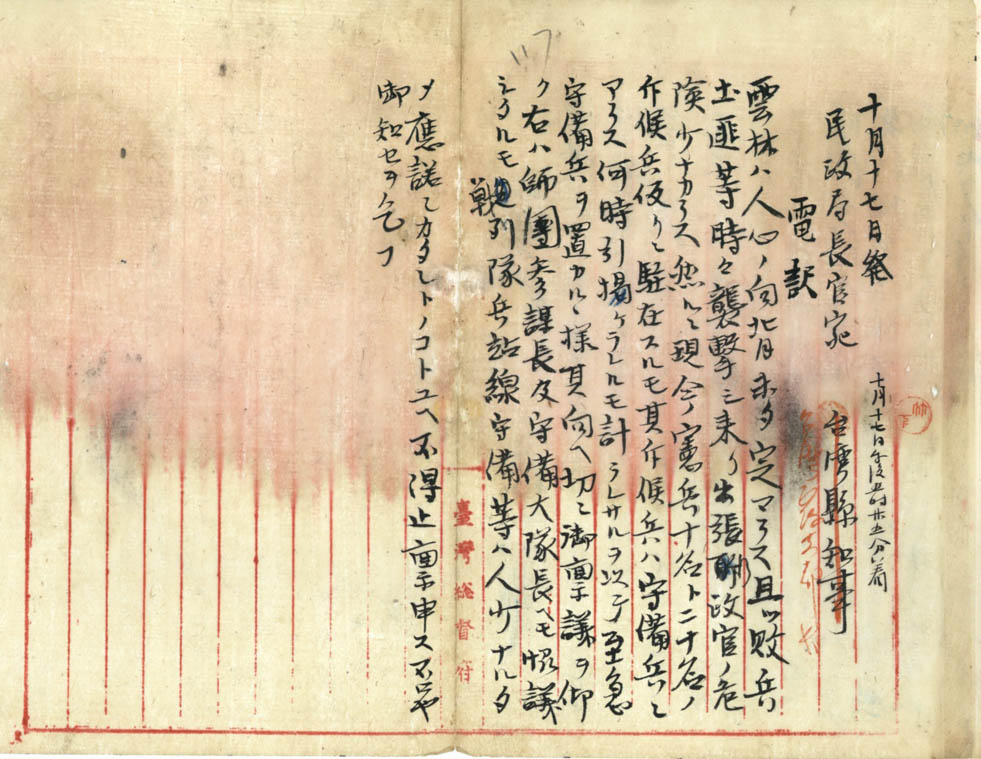 十月十七日発
十月十七日午後五時廿五分着
民政局長官宛
台湾縣知事
電訳
雲林ハ人心ノ向背未タ定マラス且ツ敗兵
土匪等時々襲撃シ来リ出張 政官ノ危
険少ナカラス然ルニ現今憲兵十名ト二十名ノ
斥候兵仮リニ駐在スルモ其斥候兵ハ守備兵ニ
アラス何時引揚ケラレルモ計ラレサルヲ以テ至急
守備兵ヲ置カルヽ様其向ヘ切ニ御稟議ヲ仰
ク右ハ師團参謀長及守備大隊長ヘモ協議
シタルモ戦列隊兵站線守備等ハ人少ナルタ
メ應諾シカタシトノコトユヘ不得止稟申ス不取
御知セヲ乞フ
臺灣総督府
117